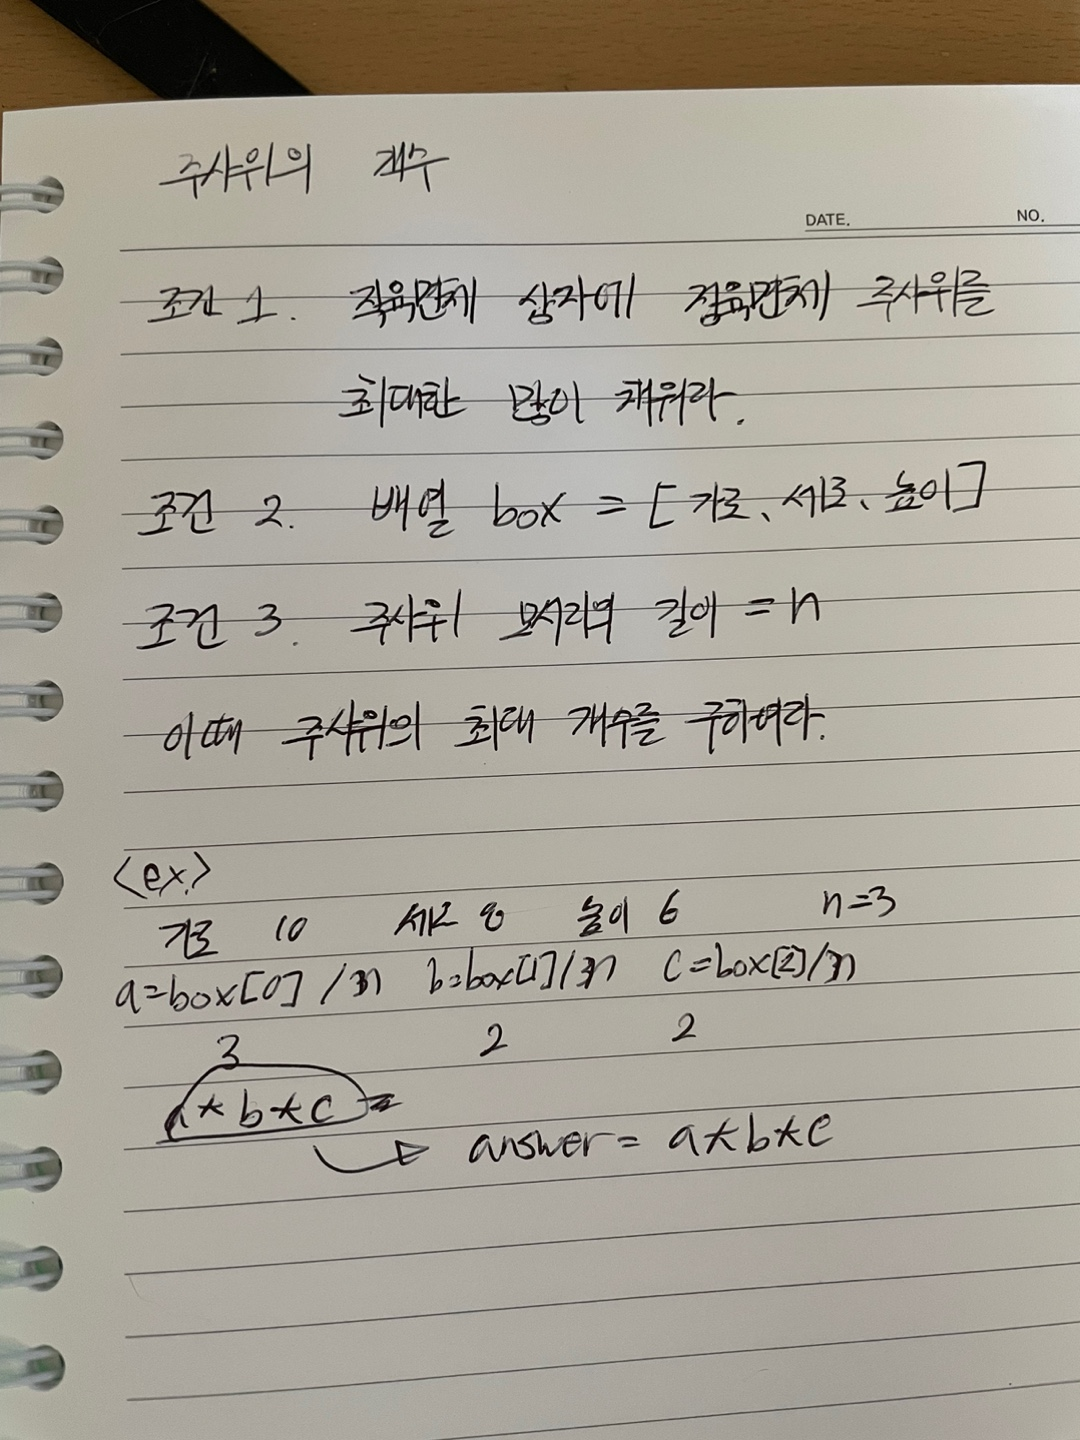 주사위의 개수
DATE. NO.
조건 1. 직육면체 상자에 정육면체 주사위를
최대한 많이 채워라.
조건 2. 배열 box = [가로、세로、높이]
조건 3. 주사위 모서리의 길이 = n
이때 주사위의 최대 개수를 구하여라.
<ex>
가로 10 세로 8 높이 6 n=3
a=box[0] /n b=box[1]/n c=box[2]/n
3 2 2
a*b*c =
answer = a*b*c